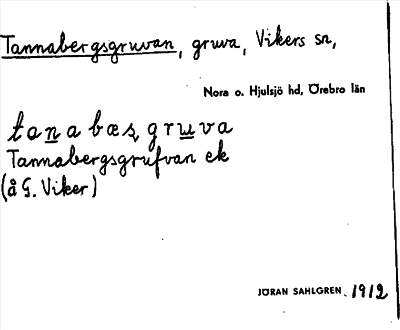 Tannabergsgruvan, gruva, Vikers sn,
Nora o. Hjulsjö hd, Örebro län
tanabæs̨gruva
Tannabergsgrufvan ek
(å G. Viker)
JÖRAN SAHLGREN. 1912